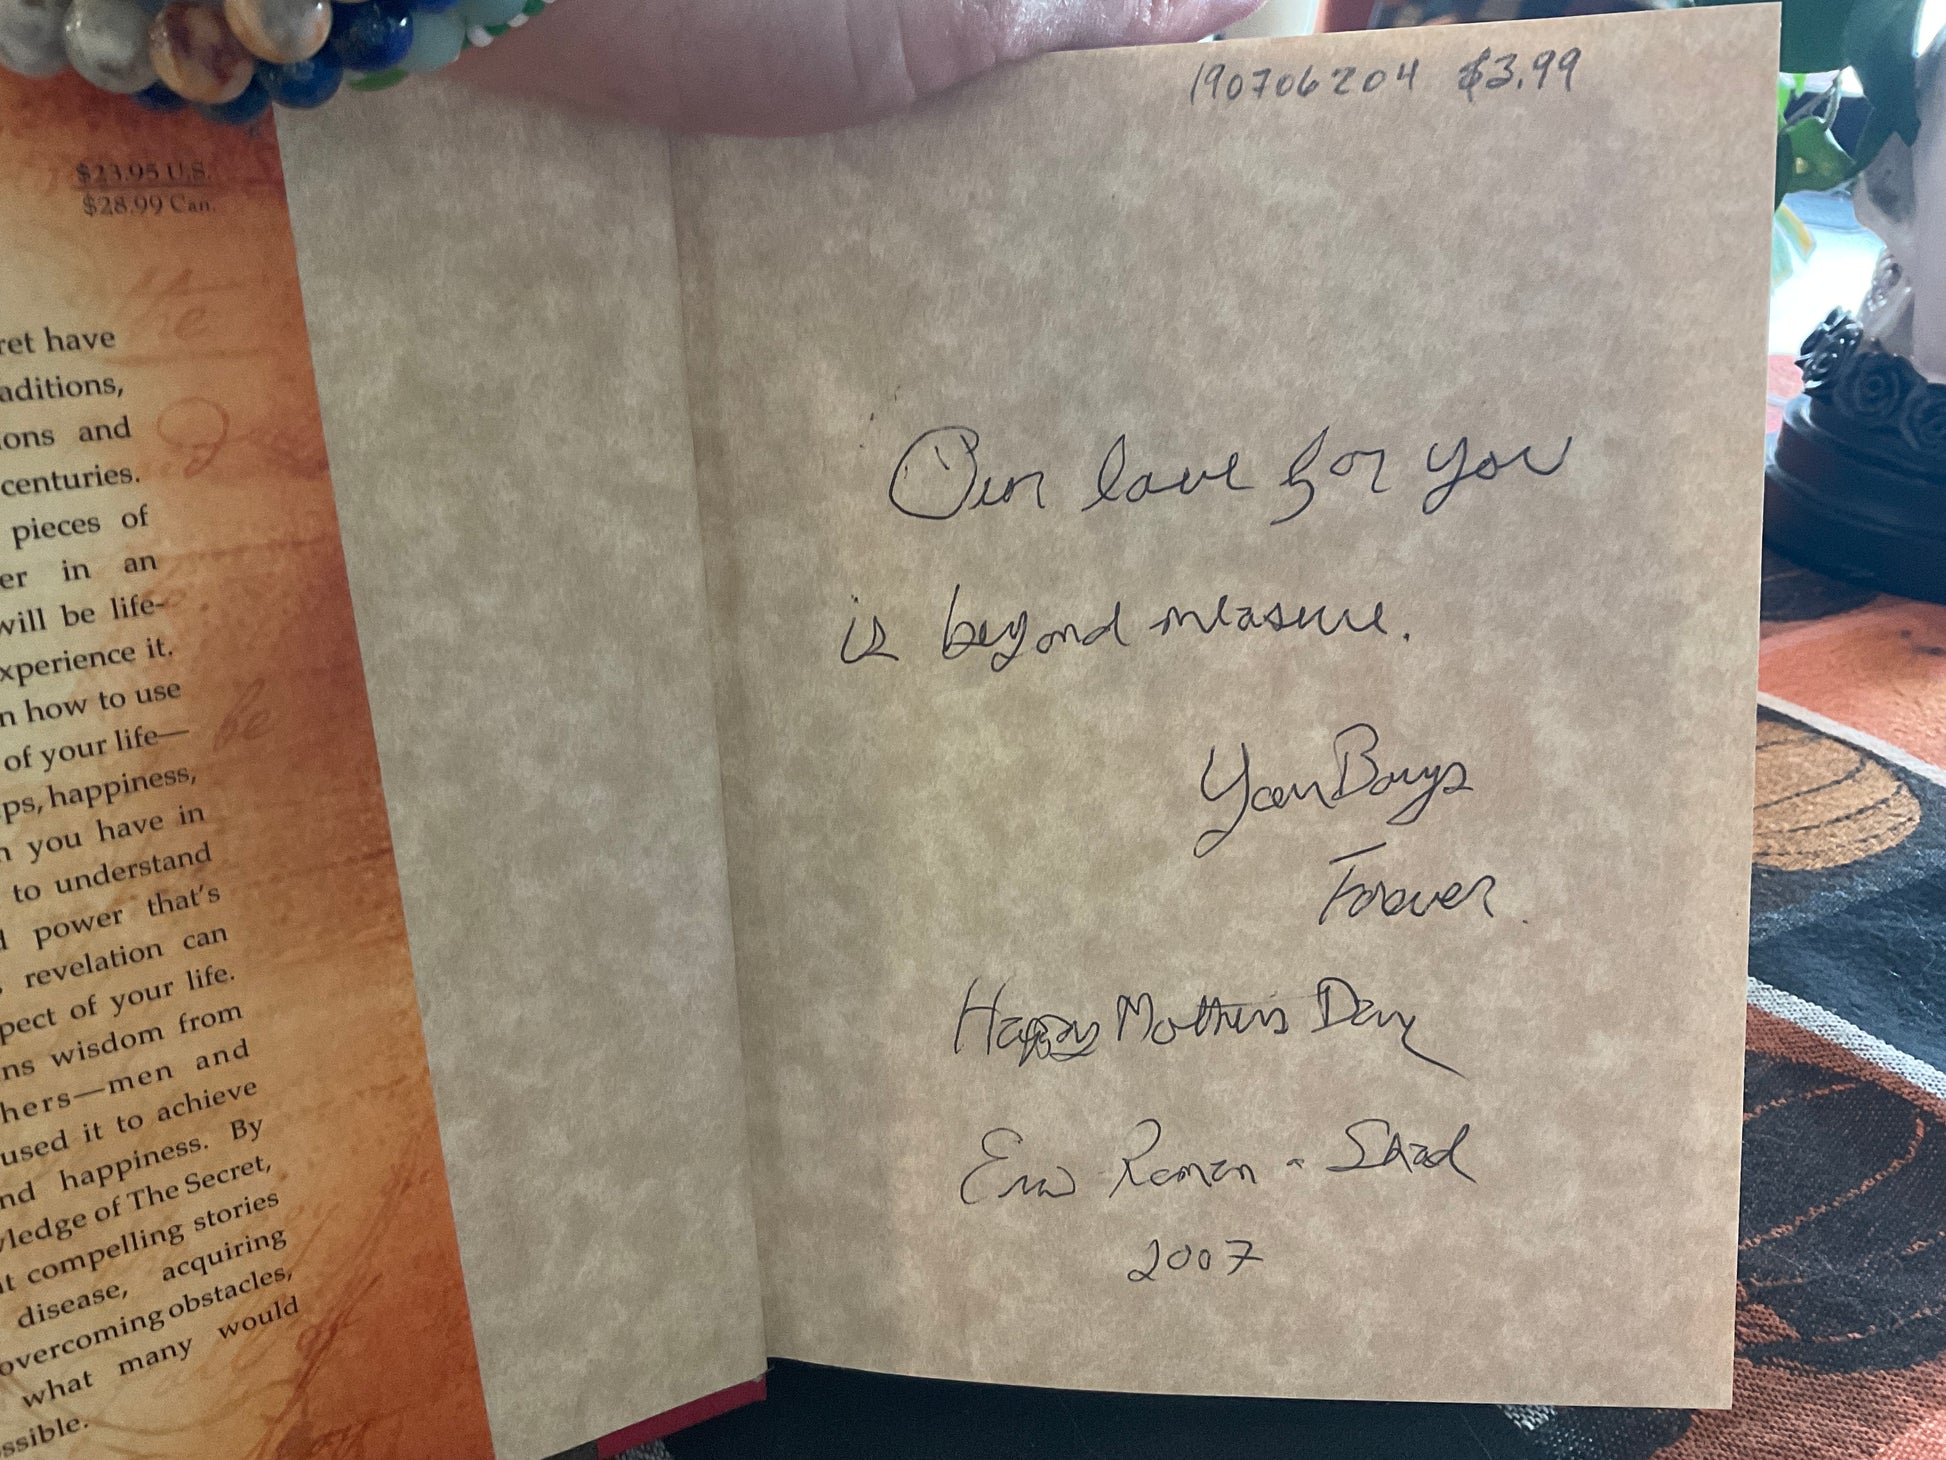 $23.95 U.S.
$28.99 Can.
ret have
aditions,
ions and
centuries.
pieces of
er in an
will be life-
xperience it.
n how to use
of your life—
ps, happiness,
n you have in
to understand
d power that's
revelation can
pect of your life.
ns wisdom from
hers—men and
used it to achieve
nd happiness. By
ledge of The Secret,
t compelling stories
disease, acquiring
overcoming obstacles,
what many would
ssible.
190706204 $3.99
Our love for you
is beyond measure.
Your Boys
Forever.
Happy Mothers Day
Roman - Shad
2007